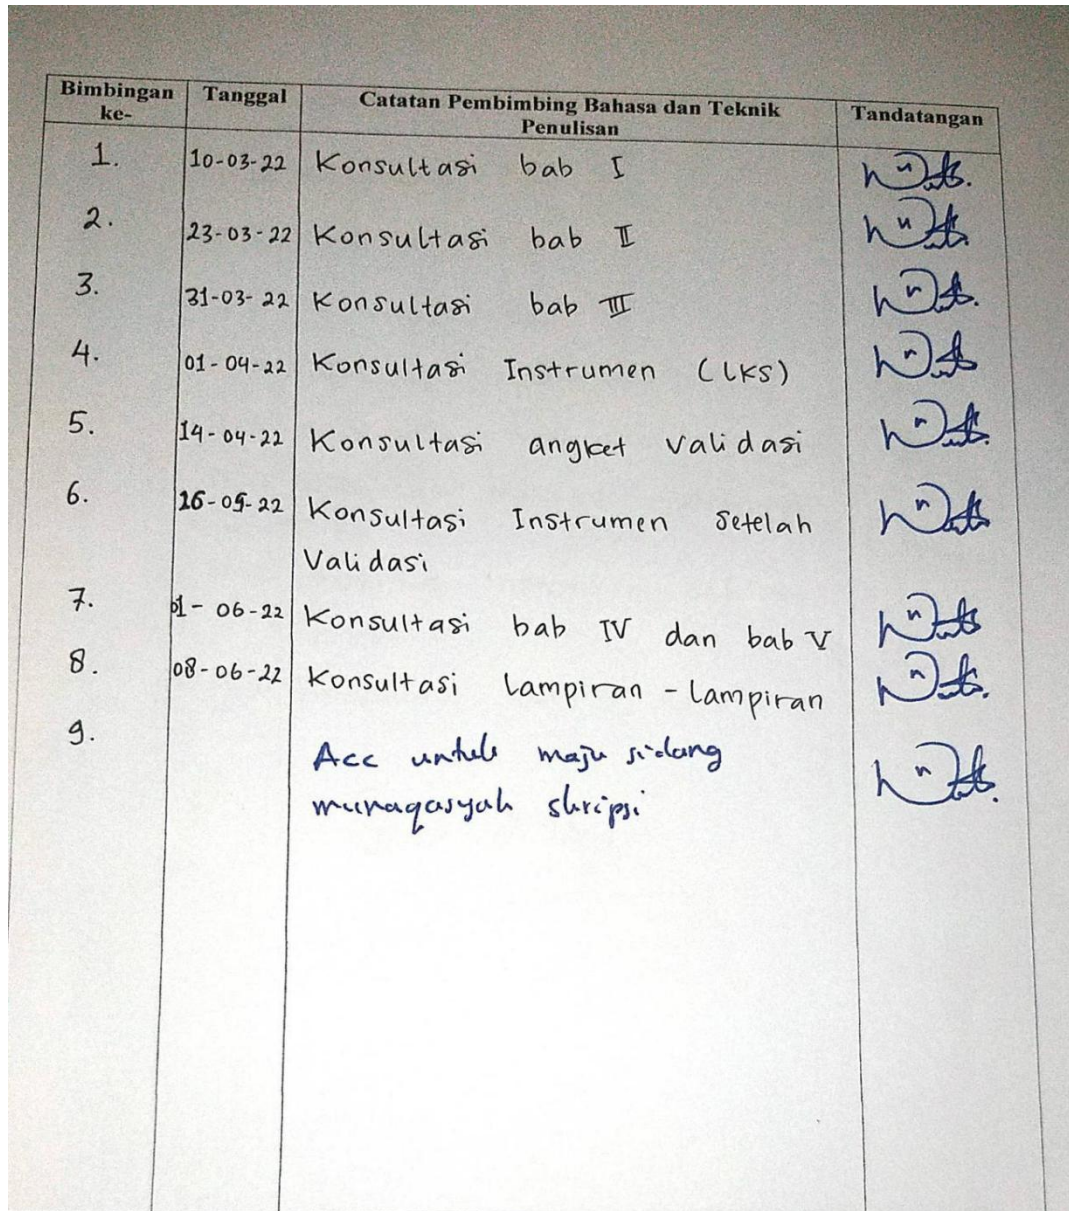 Bimbingan ke- Tanggal Catatan Pembimbing Bahasa dan Teknik Penulisan Tandatangan
1. 10-03-22 Konsultasi bab I
2. 23-03-22 Konsultasi bab II
3. 31-03-22 Konsultasi bab III
4. 01-04-22 Konsultasi Instrumen (LKS)
5. 14-04-22 Konsultasi angket validasi
6. Konsultasi Instrumen Setelah
Validasi
7. 01-06-22 Konsultasi bab IV dan bab V
8. 08-06-22 Konsultasi Lampiran - Lampiran
9. Acc untuk maju sidang
munaqasyah skripsi